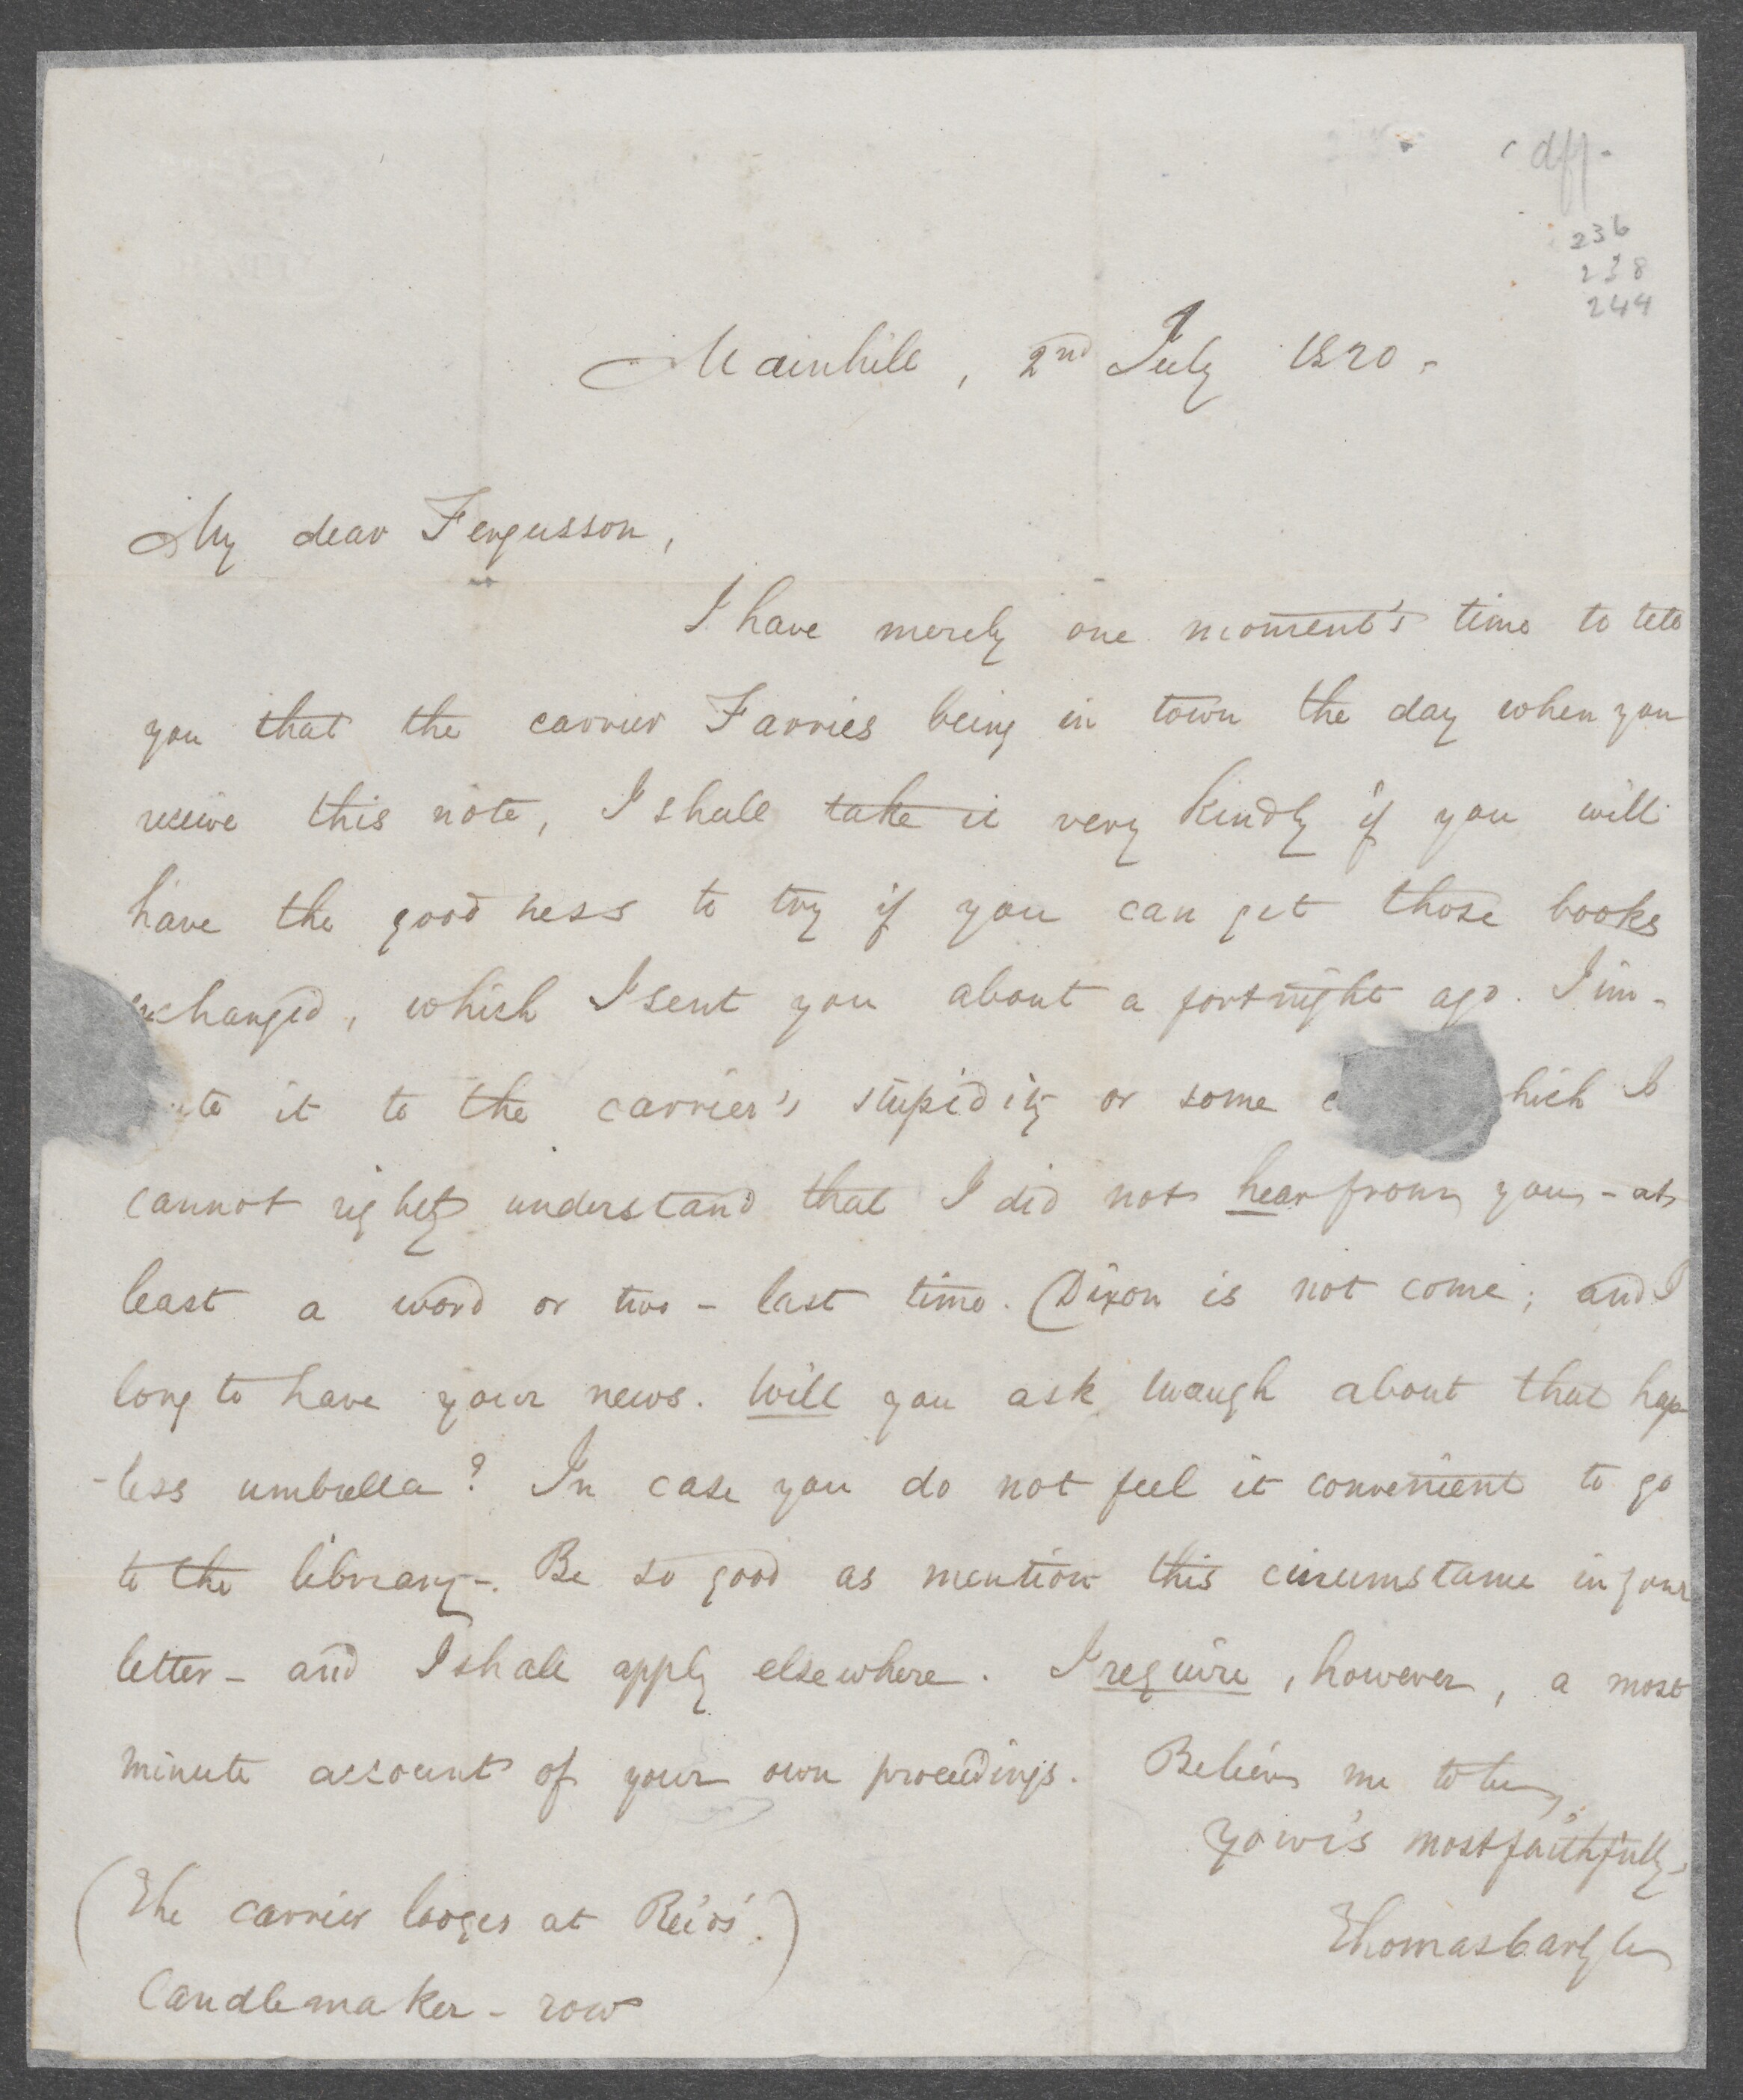 236
238
244
Mainhill, 2nd July 1820.
My dear Fergusson,
I have merely one moment's time to tell
you that the carrier Farries being in town the day when you
receive this note, I shall take it very kindly if you will
have the goodness to try if you can get those books
exchanged, which I sent you about a fortnight ago. I im-
ute it to the carrier's stupidity or some hich I
cannot rightly understand that I did not hear from you - at
least a word or two - last time. Dixon is not come; and I
long to have your news. Will you ask Waugh about that hap
-less umbrella? In case you do not feel it convenient to go
to the library-. Be so good as mention this circumstance in your
letter - and I shall apply elsewhere. I require, however, a most
minute account of your own proceedings. Believe me to be,
Your's most faithfully,
(The carrier lodges at Reid's.)
Thomas Carlyle
Candlemaker-row